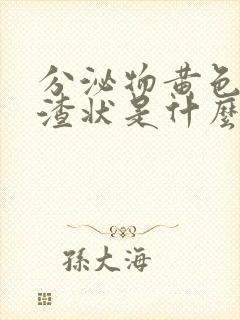 分泌物黄色
渣状是什麼
孫大海